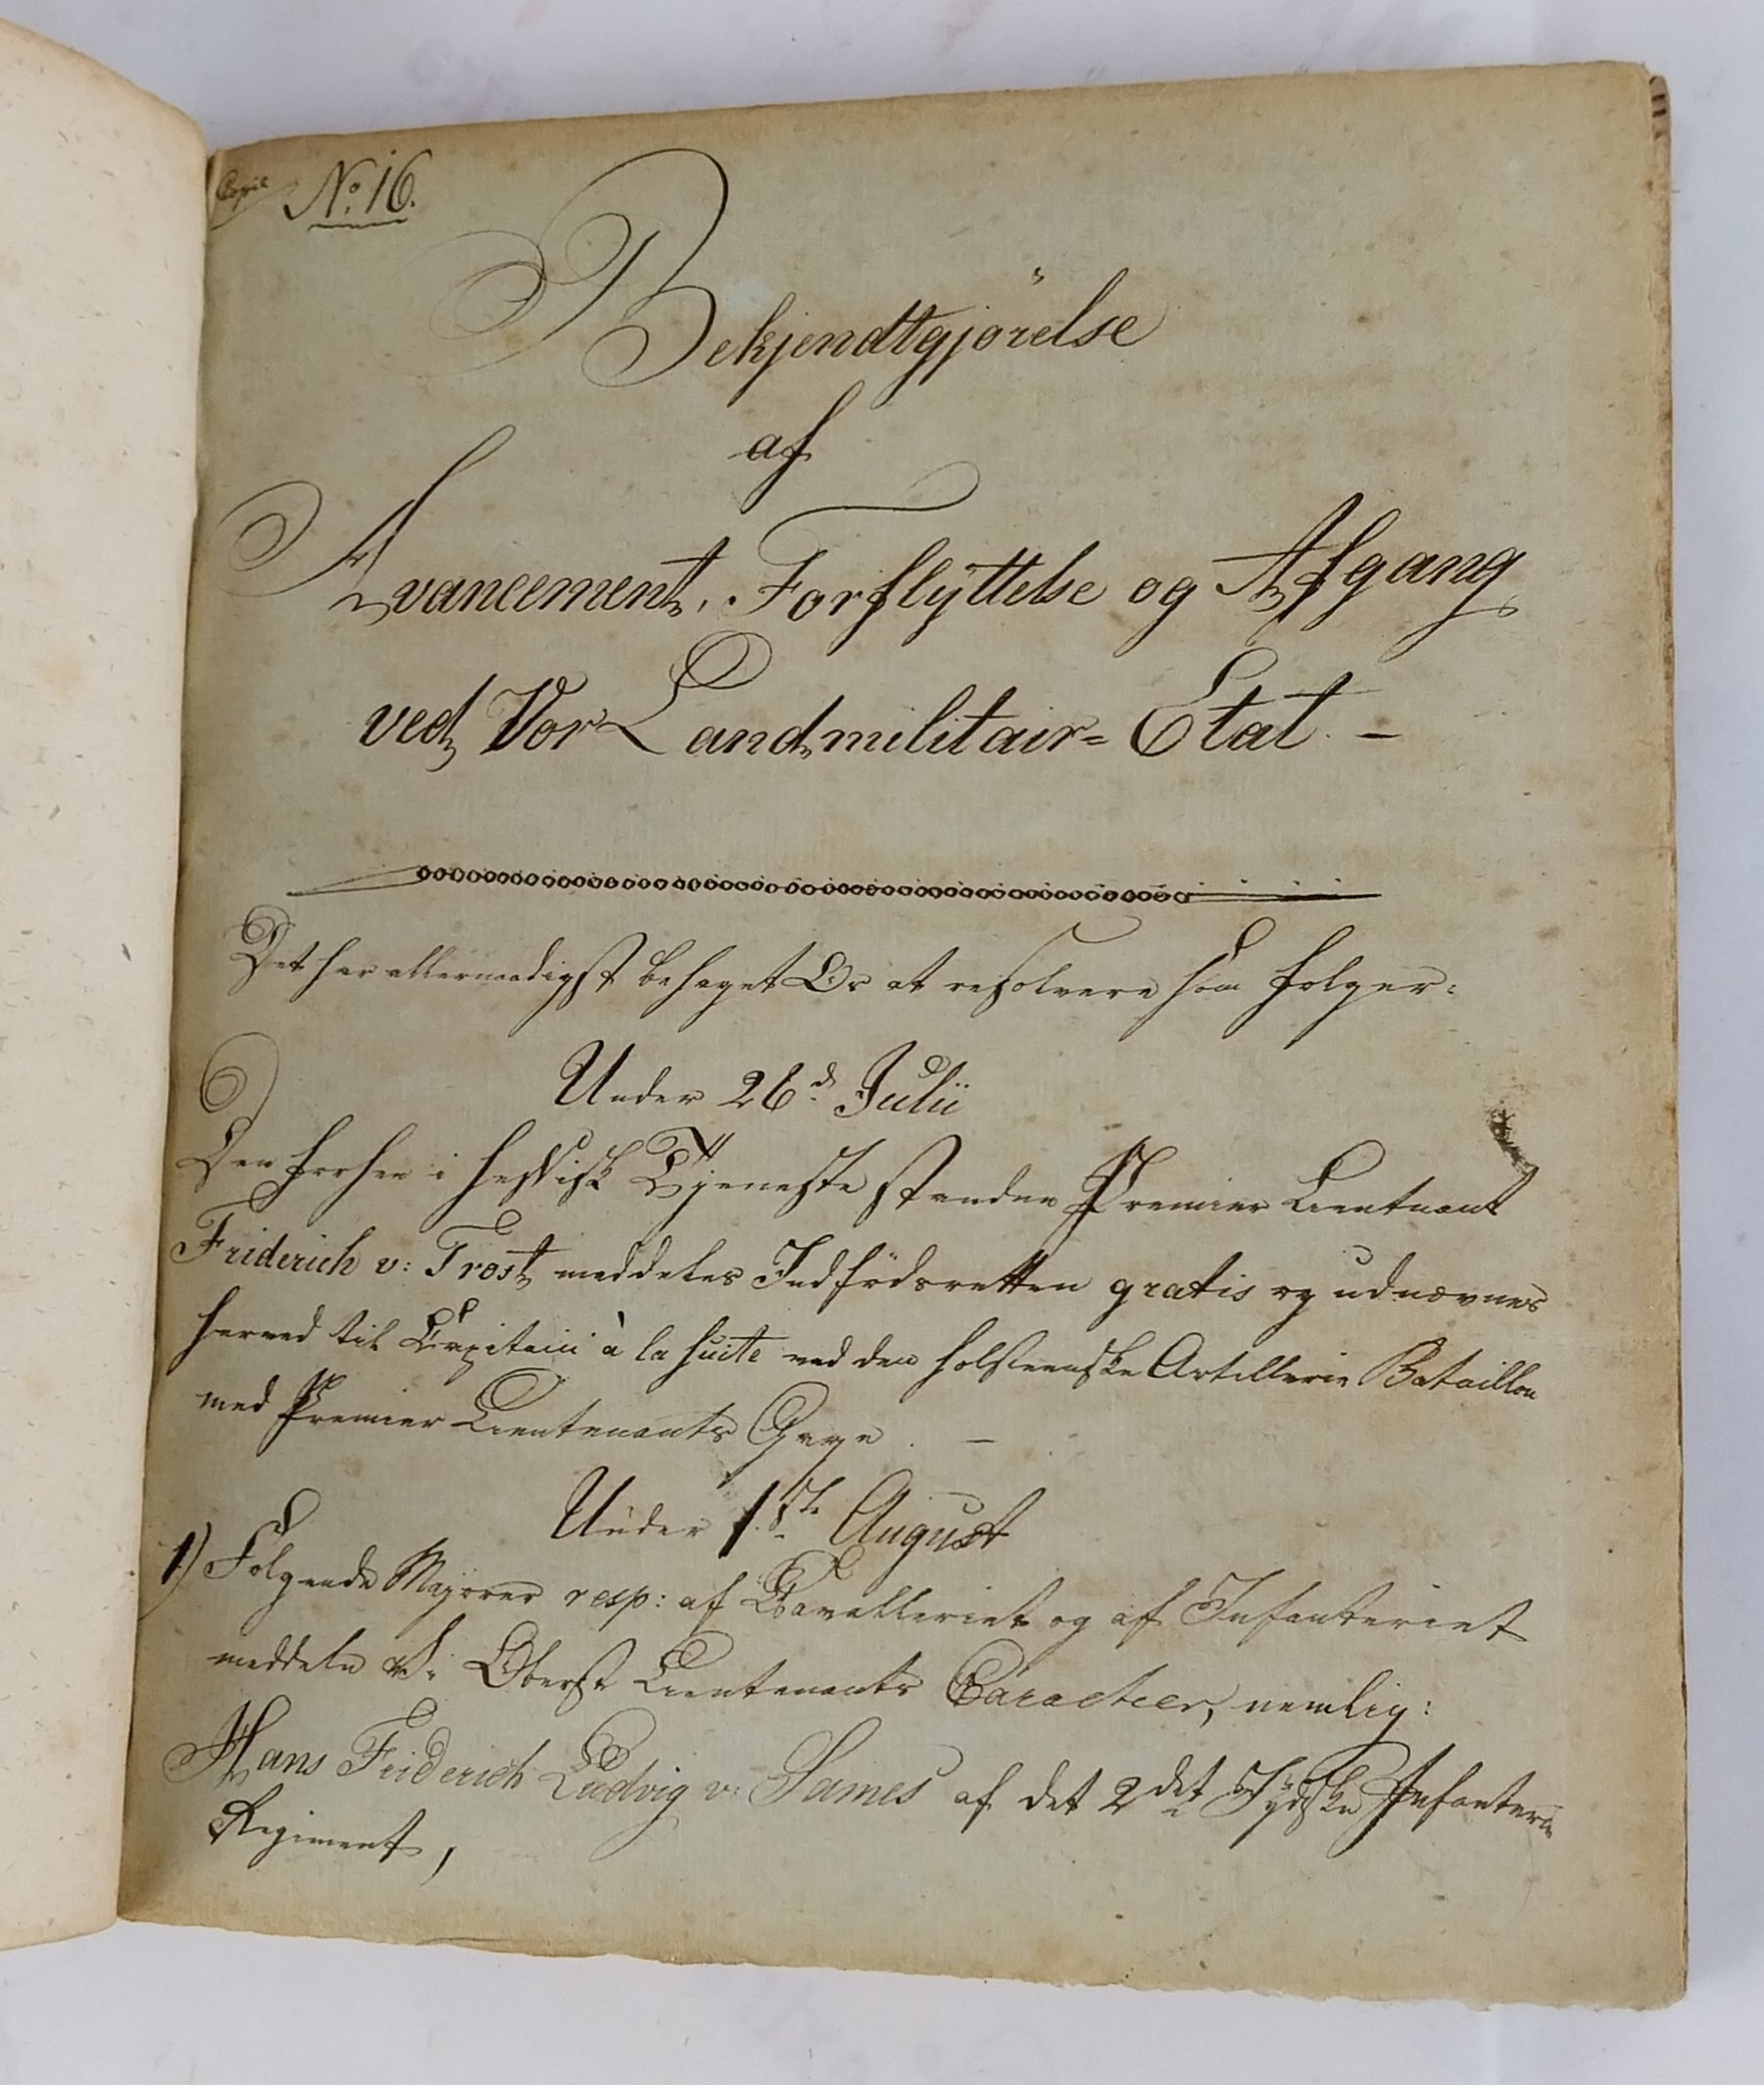 Copie No. 16.
Bekjendtgjörelse
af
Avancement, Forflyttelse og Afgang
ved Vor Landmilitair=Etat. –
Det har allernaadigst behaget Os at resolvere som følger:
Under 26d. Julii
Den forhen i hessisk Tjeneste standne Premier Lieutnant
Friderich v: Trost meddeles Indfödsretten gratis og udnævnes
herved til Capitain à la suite ved den holsteenske Artillerie Bataillon
med Premier Lieutenants Gage. –
Under 1ste August
1) Følgende Majorer resp: af Cavalleriet og af Infanteriet
meddele Vi Oberst Lieutenants Caracteer, nemlig:
Hans Friderich Ludvig v: Sames af det 2det Jydske Infanterie
Regiment,